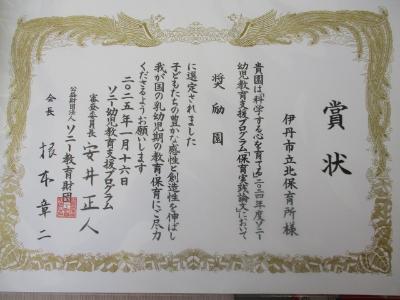 賞状
伊丹市立北保育所様
貴園は科学する心を育てる二〇二四年度ソニー
幼児教育支援プログラム「保育実践論文」において、
奨励園
に選定されました
子どもたちの豊かな感性と創造性を伸ばし
我が国の乳幼児期の教育保育にご尽力
くださるようお願いします
二〇二五年一月十六日
ソニー幼児教育支援プログラム
審査委員長 安井正人
公益財団法人 ソニー教育財団
会長 根本章二